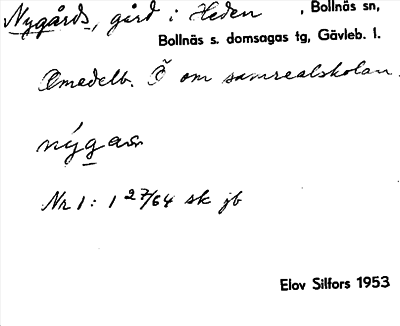 Nygårds, gård i Heden , Bollnäs sn,
Bollnäs s. domsagas tg, Gävleb. l.
Omedelb. Ö om samrealskolan.
nýgaʂ
Nr 1: 1 27/64 sk jb
Elov Silfors 1953